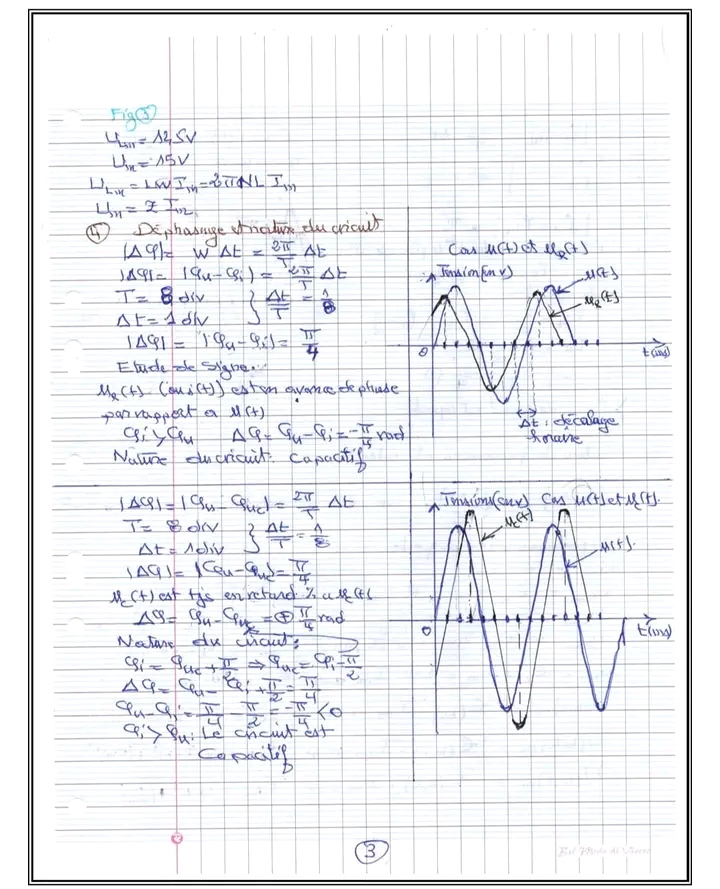 Fig(3)
U_Lm = 12,5V
U_m = 15V
U_Lm = LW I_m = 2πNL I_m
U_m = Z I_m
(4) Déphasage et nature du circuit
|Δφ| = W Δt = 2π/T Δt
|Δφ| = |φu - φi| = 2π/T Δt
T = 8 div } Δt/T = 1/8
Δt = 1 div
|Δφ| = |φu - φi| = π/4
Etude de Signe..
u_R(t) (ou i(t)) est en avance de phase
par rapport a u(t)
φi > φu Δφ = φu - φi = -π/4 rad
Nature du circuit: Capacitif
Cas u(t) et u_R(t)
Tension (en v)
u(t)
u_R(t)
0
t(ms)
Δt : décalage
horaire
|Δφ| = |φu - φuc| = 2π/T Δt
T = 8 div } Δt/T = 1/8
Δt = 1 div
|Δφ| = |φu - φuc| = π/4
u_c(t) est tjs en retard % a u(t)
Δφ = φu - φuc = ⊕ π/4 rad
Nature du circuit:
φi = φuc + π/2 ⇒ φuc = φi - π/2
Δφ = φu - φi + π/2 = π/4
φu - φi = π/4 - π/2 = -π/4 < 0
φi > φu: Le circuit est
Capacitif
Tensions (en v) Cas u(t) et u_c(t).
u_c(t)
u(t).
0
t(ms)
3